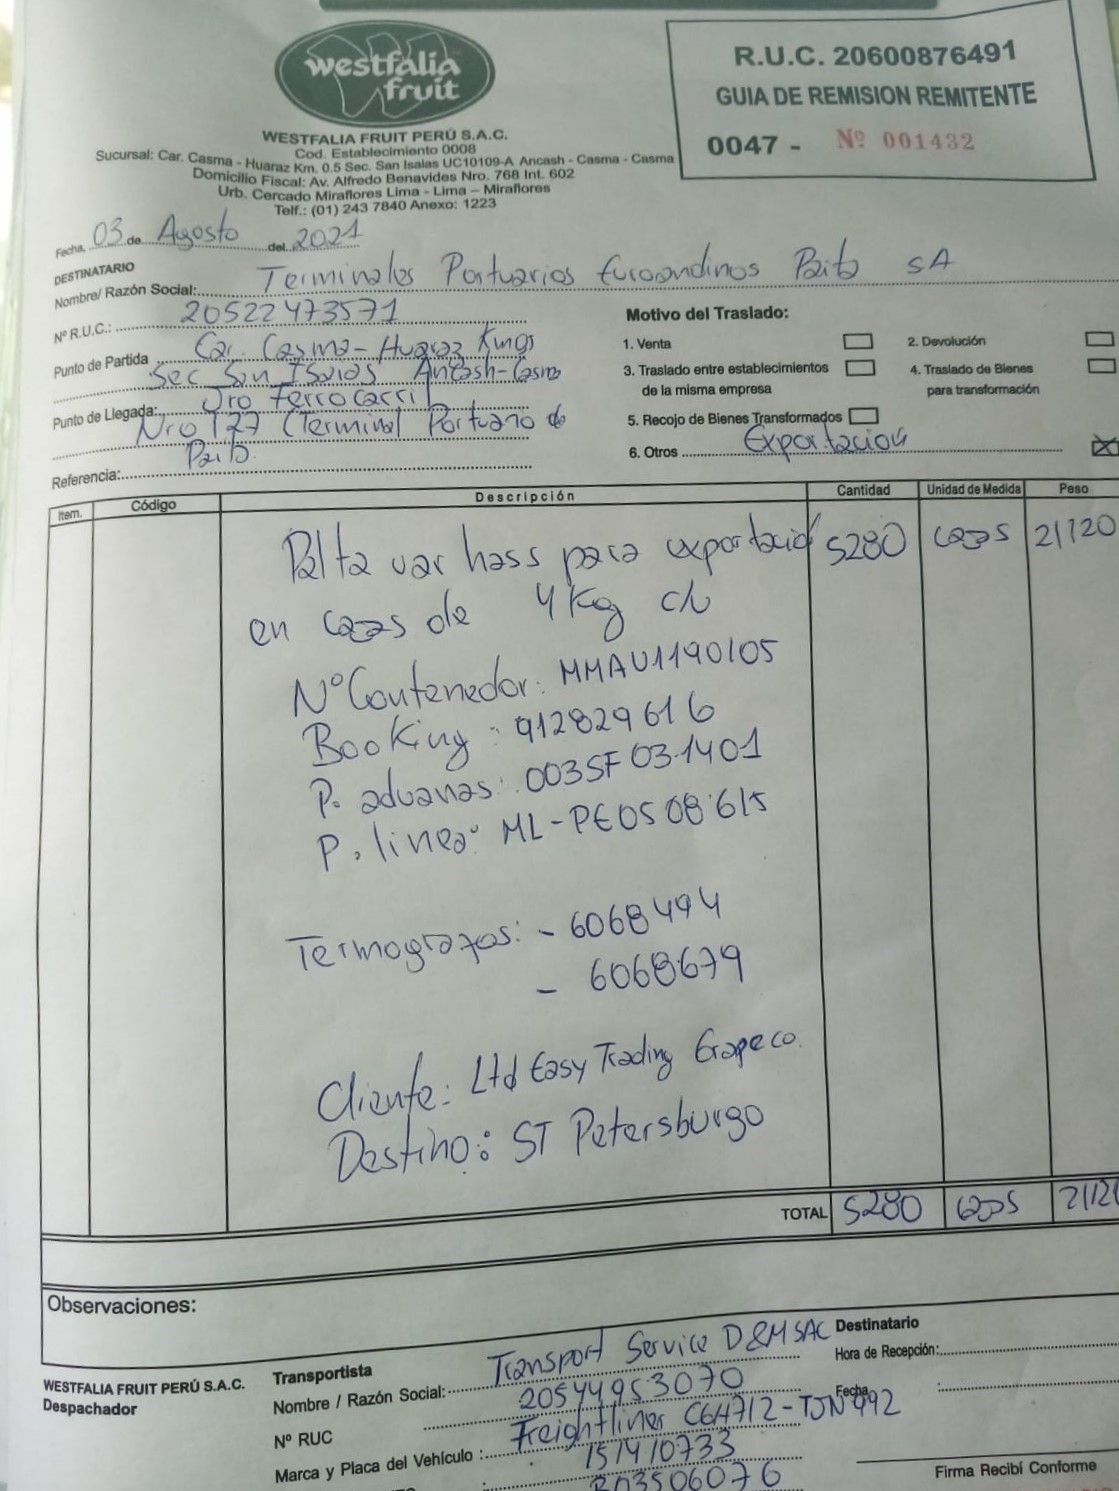 westfalia
fruit
WESTFALIA FRUIT PERÚ S.A.C.
Cod. Establecimiento 0008
Sucursal: Car. Casma - Huaraz Km. 0.5 Sec. San Isaias UC10109-A Ancash - Casma - Casma
Domicilio Fiscal: Av. Alfredo Benavides Nro. 768 Int. 602
Urb. Cercado Miraflores Lima - Lima – Miraflores
Telf.: (01) 243 7840 Anexo: 1223
R.U.C. 20600876491
GUIA DE REMISION REMITENTE
0047 - Nº 001432
Fecha, 03 de Agosto del 2021
DESTINATARIO
Nombre/ Razón Social: Terminales Portuarios Euroandinos Paita SA
Nº R.U.C.: 20522473571
Punto de Partida Car. Casma - Huaraz
Sec San Isaias Ancash-Casma
Punto de Llegada: Jro ferrocarril
Nro 127 (Terminal Portuario de
Paita.
Referencia:
Motivo del Traslado:
1. Venta
2. Devolución
3. Traslado entre establecimientos
de la misma empresa
4. Traslado de Bienes
para transformación
5. Recojo de Bienes Transformados
6. Otros Exportación X
Item. Código Descripción Cantidad Unidad de Medida Peso
Palta var hass para exportació 5280 cajas 21120
en cajas de 4 Kg c/u
Nº Contenedor: MMAU1190105
Booking: 912829616
P. aduanas: 003SF031401
P. linea: ML-PE0508615
Termografos: - 6068494
- 6068679
Cliente: Ltd Easy Trading Grapeco.
Destino: ST Petersburgo
TOTAL 5280 cajas 2112
Observaciones:
WESTFALIA FRUIT PERÚ S.A.C.
Despachador
Transportista
Nombre / Razón Social: Transport Service D&M SAC
Nº RUC 20544953070
Marca y Placa del Vehículo: Freightliner C6H712-TJN992
151410733
Destinatario
Hora de Recepción:
Fecha :
Firma Recibí Conforme